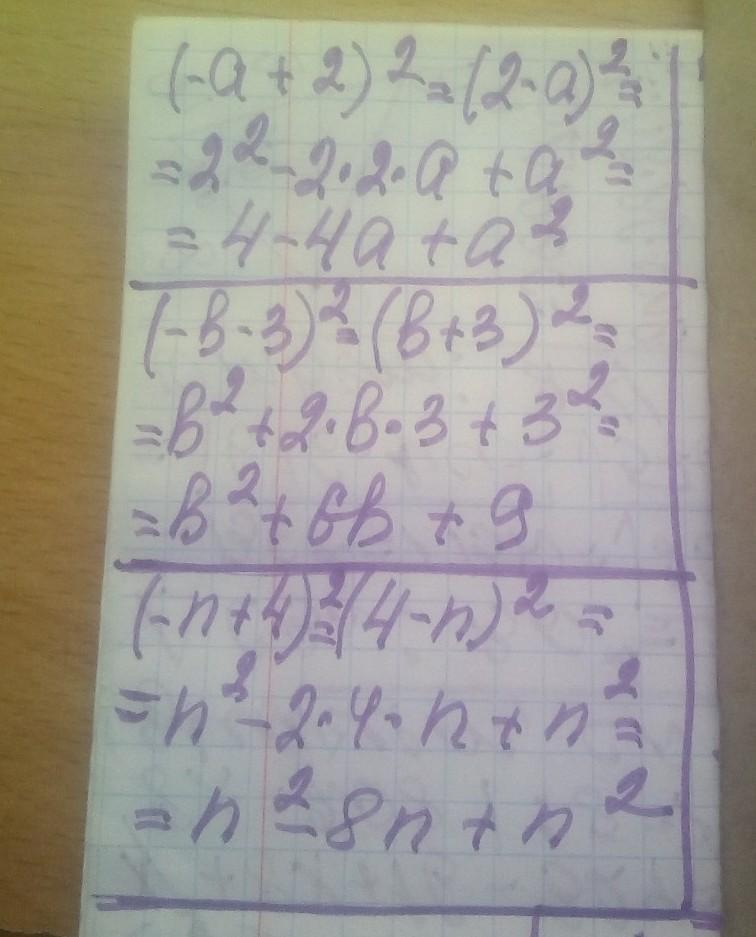 (-a + 2)² = (2-a)² =
= 2² - 2·2·a + a² =
= 4 - 4a + a²
(-в-3)² = (в+3)² =
= в² + 2·в·3 + 3² =
= в² + 6в + 9
(-n+4)² = (4-n)² =
= n² - 2·4·n + n² =
= n² - 8n + n²